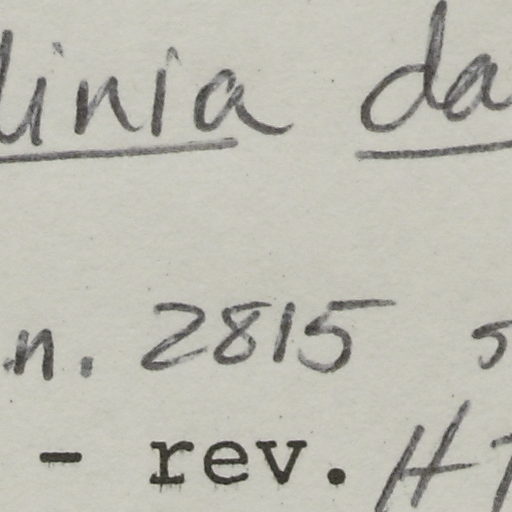 linia da
n. 2815 s
- rev. H